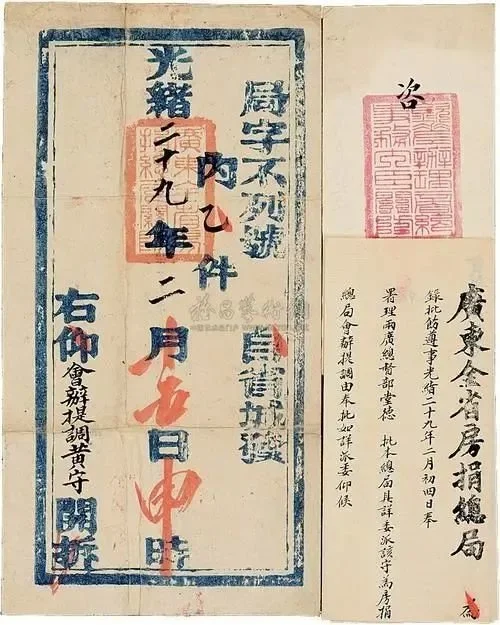 咨
廣東全省房捐總局 為
錄批飭遵事光緒二十九年二月初四日奉
署理兩廣總督部堂德 批本總局具詳委派該守為房捐
總局會辦提調由奉批如詳派委仰候
局字不列號 自省城發
內乙件
光緒二十九年二月十五日申時
右仰會辦提調黃守開拆